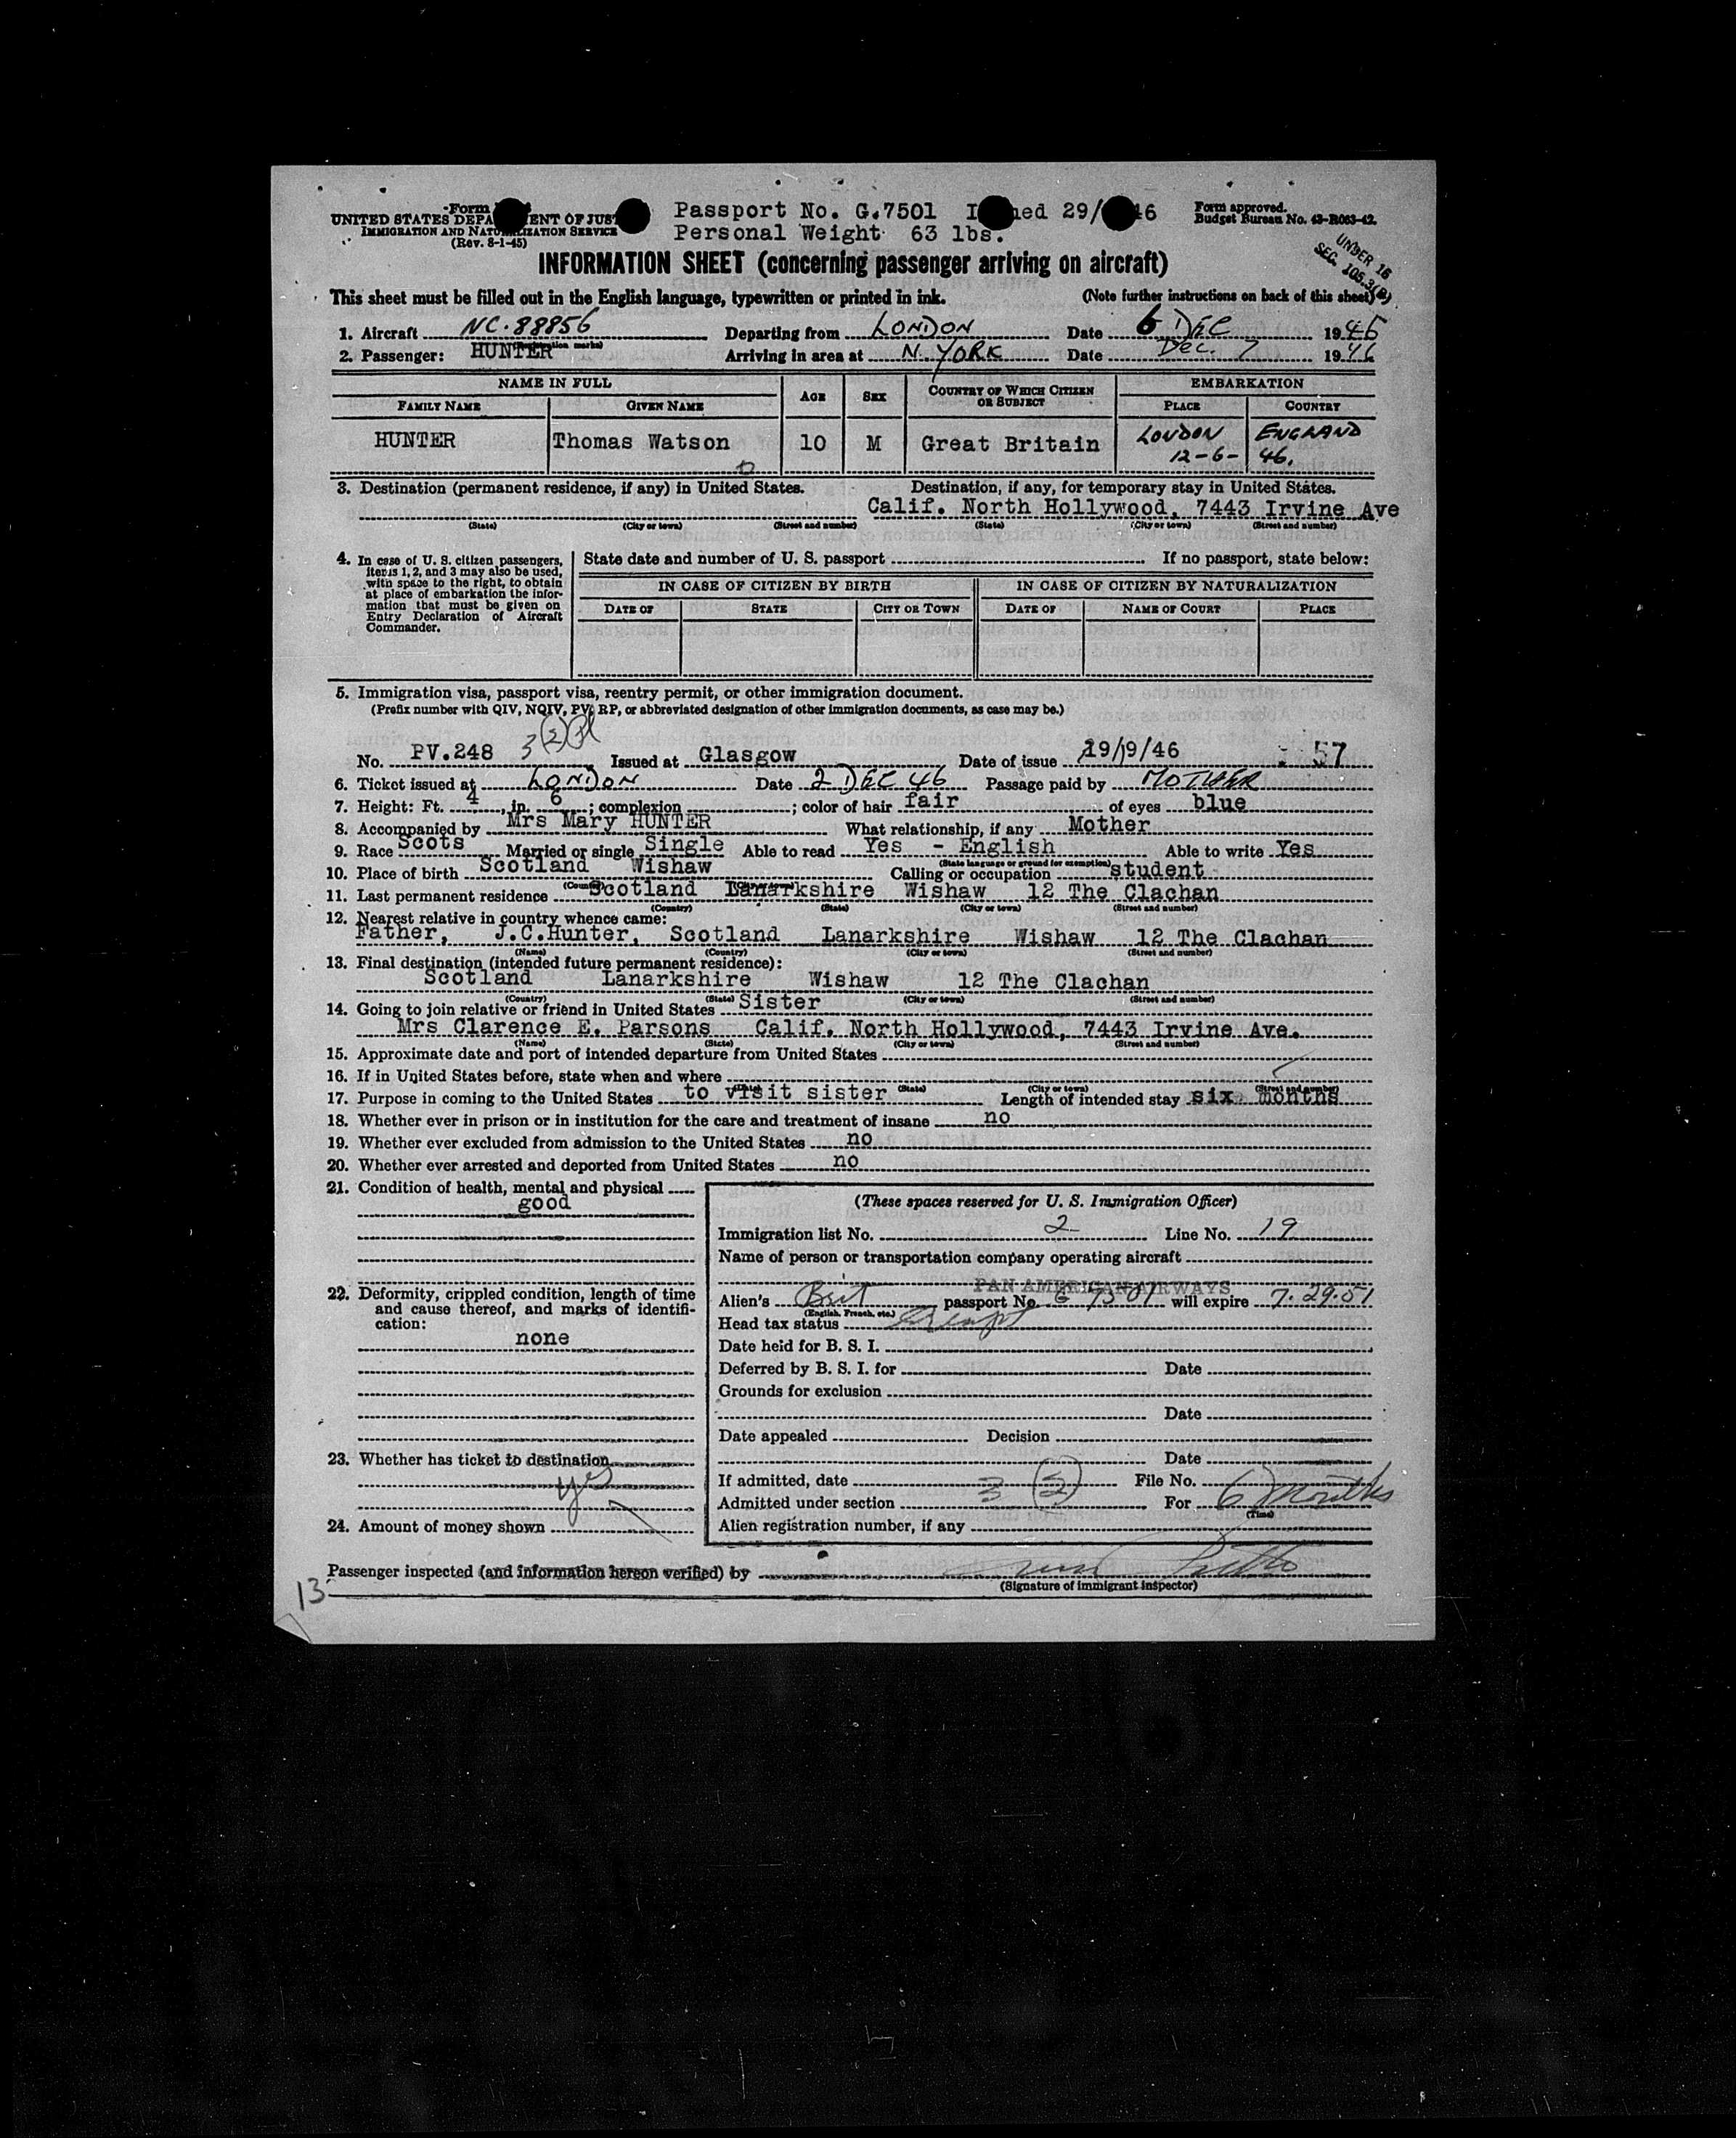 Form
UNITED STATES DEPA ENT OF JUS
IMMIGRATION AND NATURALIZATION SERVICE
(Rev. 8-1-45)
Passport No. G.7501 I ued 29/ 46
Personal Weight 63 lbs.
Form approved.
Budget Bureau No. 43-R063-42.
UNDER 16
SEC. 105.3(a)
INFORMATION SHEET (concerning passenger arriving on aircraft)
This sheet must be filled out in the English language, typewritten or printed in ink. (Note further instructions on back of this sheet)
1. Aircraft NC.88856 Departing from LONDON Date 6 DEC 1946
(Registration marks)
2. Passenger: HUNTER Arriving in area at N. YORK Date Dec. 7 1946
NAME IN FULL AGE SEX COUNTRY OF WHICH CITIZEN OR SUBJECT EMBARKATION
FAMILY NAME GIVEN NAME PLACE COUNTRY
HUNTER Thomas Watson 10 M Great Britain LONDON ENGLAND
12-6- 46.
3. Destination (permanent residence, if any) in United States. Destination, if any, for temporary stay in United States.
Calif. North Hollywood, 7443 Irvine Ave
(State) (City or town) (Street and number) (State) (City or town) (Street and number)
4. In case of U. S. citizen passengers, items 1, 2, and 3 may also be used, with space to the right, to obtain at place of embarkation the information that must be given on Entry Declaration of Aircraft Commander.
State date and number of U. S. passport If no passport, state below:
IN CASE OF CITIZEN BY BIRTH IN CASE OF CITIZEN BY NATURALIZATION
DATE OF STATE CITY OR TOWN DATE OF NAME OF COURT PLACE
5. Immigration visa, passport visa, reentry permit, or other immigration document.
(Prefix number with QIV, NQIV, PV, RP, or abbreviated designation of other immigration documents, as case may be.)
3(2)
No. PV.248 Issued at Glasgow Date of issue 19/9/46 57
6. Ticket issued at LONDON Date 2 DEC 46 Passage paid by MOTHER
7. Height: Ft. 4, in. 6; complexion ; color of hair fair of eyes blue
8. Accompanied by Mrs Mary HUNTER What relationship, if any Mother
9. Race Scots Married or single Single Able to read Yes - English Able to write Yes
(State language or ground for exemption)
10. Place of birth Scotland Wishaw Calling or occupation student
11. Last permanent residence Scotland Lanarkshire Wishaw 12 The Clachan
(Country) (State) (City or town) (Street and number)
12. Nearest relative in country whence came:
Father, J.C.Hunter, Scotland Lanarkshire Wishaw 12 The Clachan
(Name) (Country) (City or town) (Street and number)
13. Final destination (intended future permanent residence):
Scotland Lanarkshire Wishaw 12 The Clachan
(Country) (State) (City or town) (Street and number)
14. Going to join relative or friend in United States Sister
Mrs Clarence E. Parsons Calif. North Hollywood, 7443 Irvine Ave.
(Name) (State) (City or town) (Street and number)
15. Approximate date and port of intended departure from United States
16. If in United States before, state when and where
(Date) (State) (City or town) (Street and number)
17. Purpose in coming to the United States to visit sister Length of intended stay six months
18. Whether ever in prison or in institution for the care and treatment of insane no
19. Whether ever excluded from admission to the United States no
20. Whether ever arrested and deported from United States no
21. Condition of health, mental and physical
good
22. Deformity, crippled condition, length of time and cause thereof, and marks of identification:
none
23. Whether has ticket to destination
yes
24. Amount of money shown
(These spaces reserved for U. S. Immigration Officer)
Immigration list No. 2 Line No. 19
Name of person or transportation company operating aircraft
PAN AMERICAN AIRWAYS
Alien's Brit passport No. G 7501 will expire 7.29.51
(English, French, etc.)
Head tax status
Date held for B. S. I.
Deferred by B. S. I. for Date
Grounds for exclusion
Date
Date appealed Decision
Date
If admitted, date File No.
Admitted under section 3 (2) For 6 months
(Time)
Alien registration number, if any
Passenger inspected (and information hereon verified) by
(Signature of immigrant inspector)
13